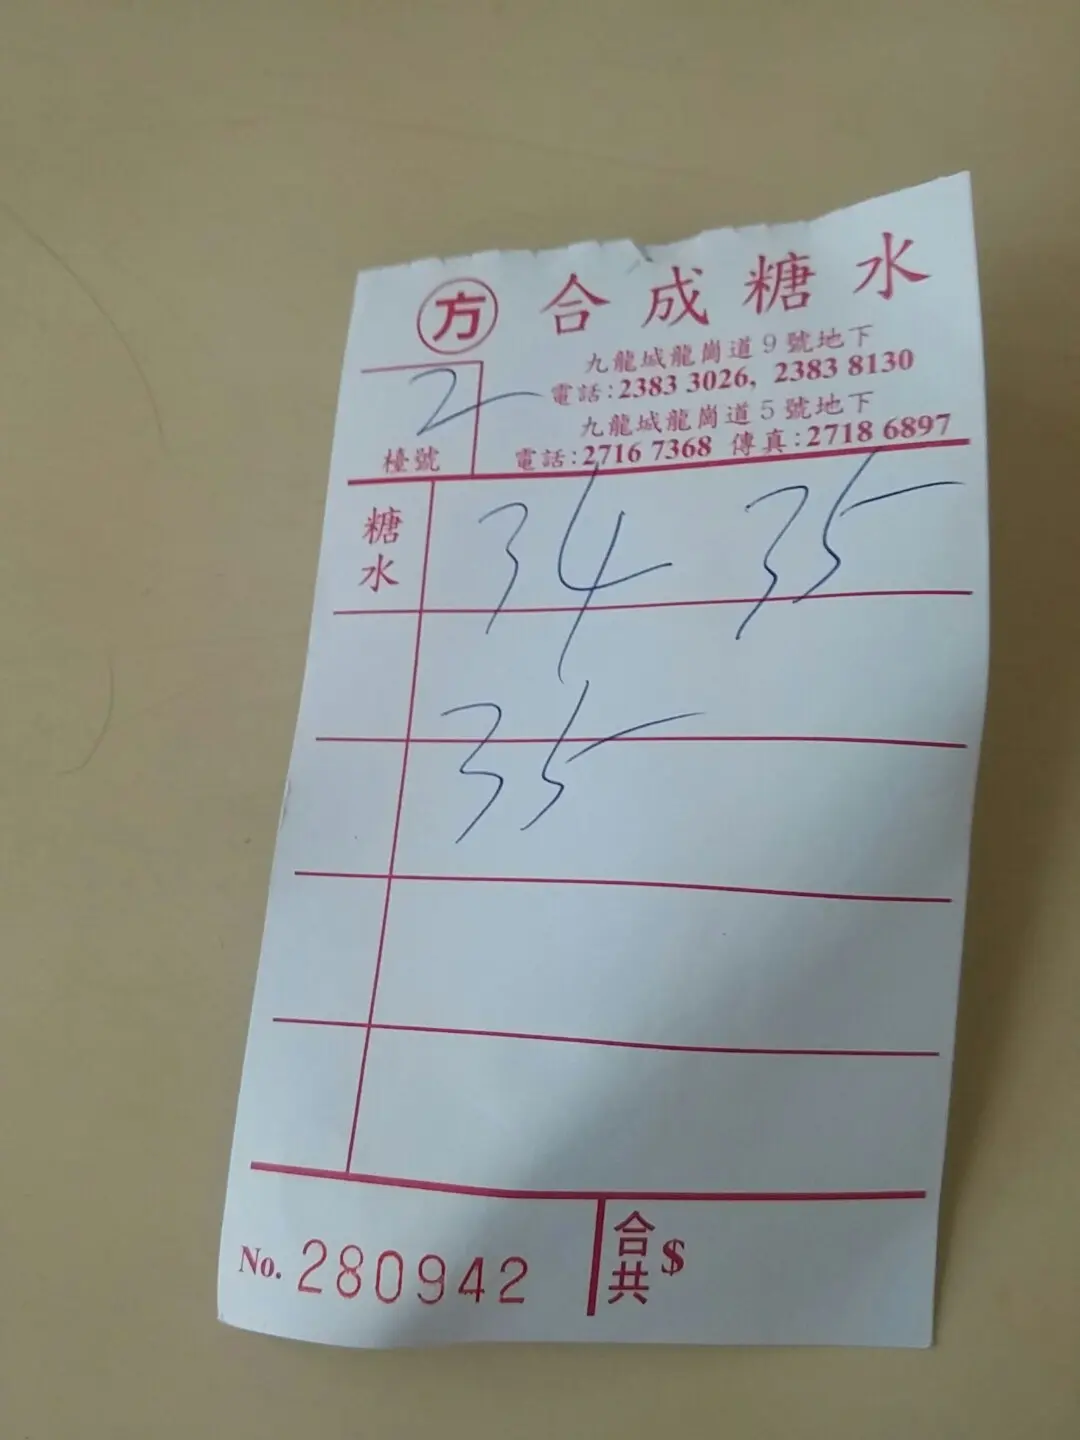 方 合成糖水
九龍城龍崗道9號地下
電話:2383 3026, 2383 8130
九龍城龍崗道5號地下
電話:2716 7368 傳真:2718 6897
2
檯號
糖水 34 35
35
No. 280942 合共 $